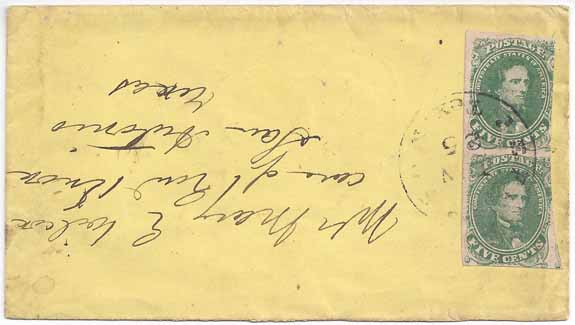 Mrs Mary E Wilcox
care of
San Antonio
Texas
POSTAGE
CONFEDERATE STATES OF AMERICA
FIVE CENTS
POSTAGE
CONFEDERATE STATES OF AMERICA
FIVE CENTS